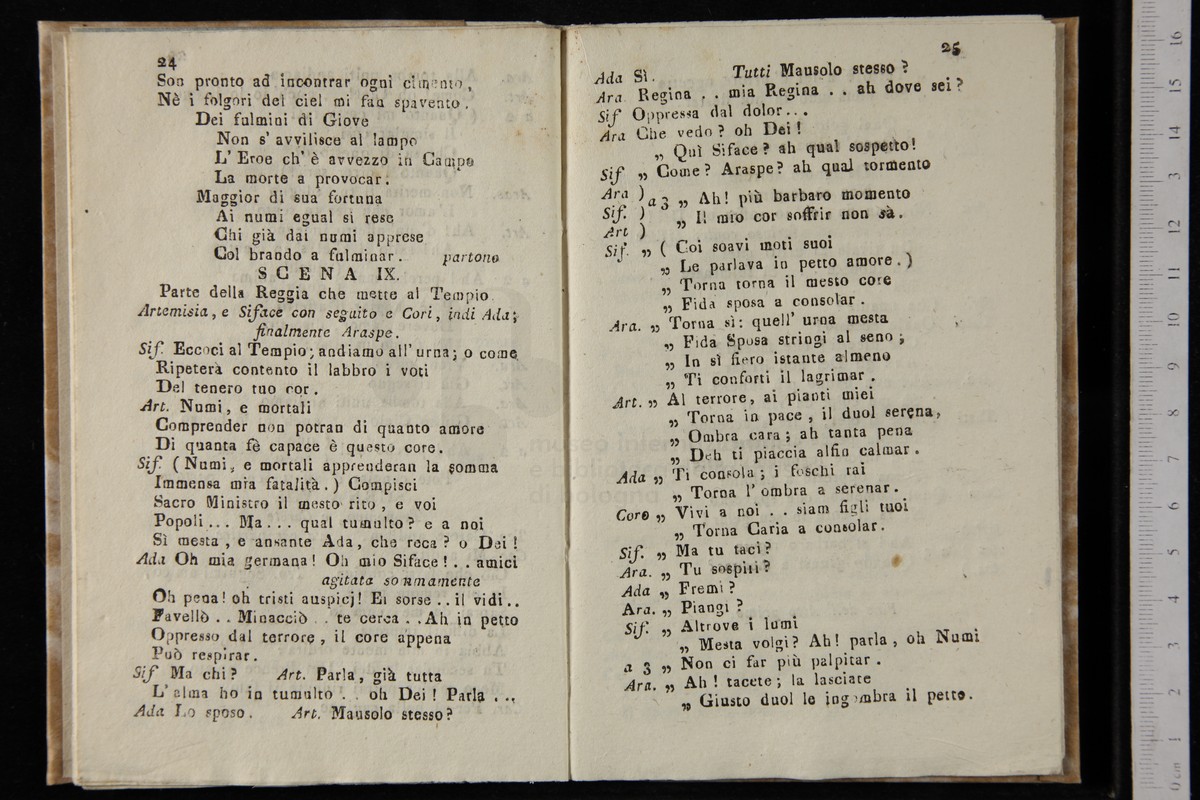 24
Son pronto ad incontrar ogni cimento,
Nè i folgori del ciel mi fan spavento.
Dei fulmini di Giove
Non s' avvilisce al lampo
L' Eroe ch' è avvezzo in Campo
La morte a provocar.
Maggior di sua fortuna
Ai numi egual si rese
Chi già dai numi apprese
Col brando a fulminar. partono
SCENA IX.
Parte della Reggia che mette al Tempio
Artemisia, e Siface con seguito e Cori, indi Ada;
finalmente Araspe.
Sif. Eccoci al Tempio; andiamo all' urna; o come
Ripeterà contento il labbro i voti
Del tenero tuo cor.
Art. Numi, e mortali
Comprender non potran di quanto amore
Di quanta fè capace è questo core.
Sif. (Numi, e mortali apprenderan la somma
Immensa mia fatalità.) Compisci
Sacro Ministro il mesto rito, e voi
Popoli... Ma... qual tumulto? e a noi
Sì mesta, e ansante Ada, che reca? o Dei!
Ada Oh mia germana! Oh mio Siface!.. amici
agitata sommamente
Oh pena! oh tristi auspicj! Ei sorse.. il vidi..
Favellò.. Minacciò.. te cerca.. Ah in petto
Oppresso dal terrore, il core appena
Può respirar.
Sif Ma chi? Art. Parla, già tutta
L' alma ho in tumulto.. oh Dei! Parla...
Ada Lo sposo. Art. Mausolo stesso?
25
Ada Sì. Tutti Mausolo stesso?
Ara Regina.. mia Regina.. ah dove sei?
Sif Oppressa dal dolor...
Ara Che vedo? oh Dei!
„ Quì Siface? ah qual sospetto!
Sif „ Come? Araspe? ah qual tormento
Ara ) a 3 „ Ah! più barbaro momento
Sif. ) „ Il mio cor soffrir non sà.
Art )
Sif. „ ( Coi soavi moti suoi
„ Le parlava in petto amore.)
„ Torna torna il mesto core
„ Fida sposa a consolar.
Ara. „ Torna sì: quell' urna mesta
„ Fida Sposa stringi al seno;
„ In sì fiero istante almeno
„ Ti conforti il lagrimar.
Art. „ Al terrore, ai pianti miei
„ Torna in pace, il duol serena,
„ Ombra cara; ah tanta pena
„ Deh ti piaccia alfin calmar.
Ada „ Ti consola; i foschi rai
„ Torna l' ombra a serenar.
Coro „ Vivi a noi.. siam figli tuoi
„ Torna Caria a consolar.
Sif. „ Ma tu taci?
Ara. „ Tu sospiri?
Ada „ Fremi?
Ara. „ Piangi?
Sif. „ Altrove i lumi
„ Mesta volgi? Ah! parla, oh Numi
a 3 „ Non ci far più palpitar.
Ara. „ Ah! tacete; la lasciate
„ Giusto duol le ingombra il petto.